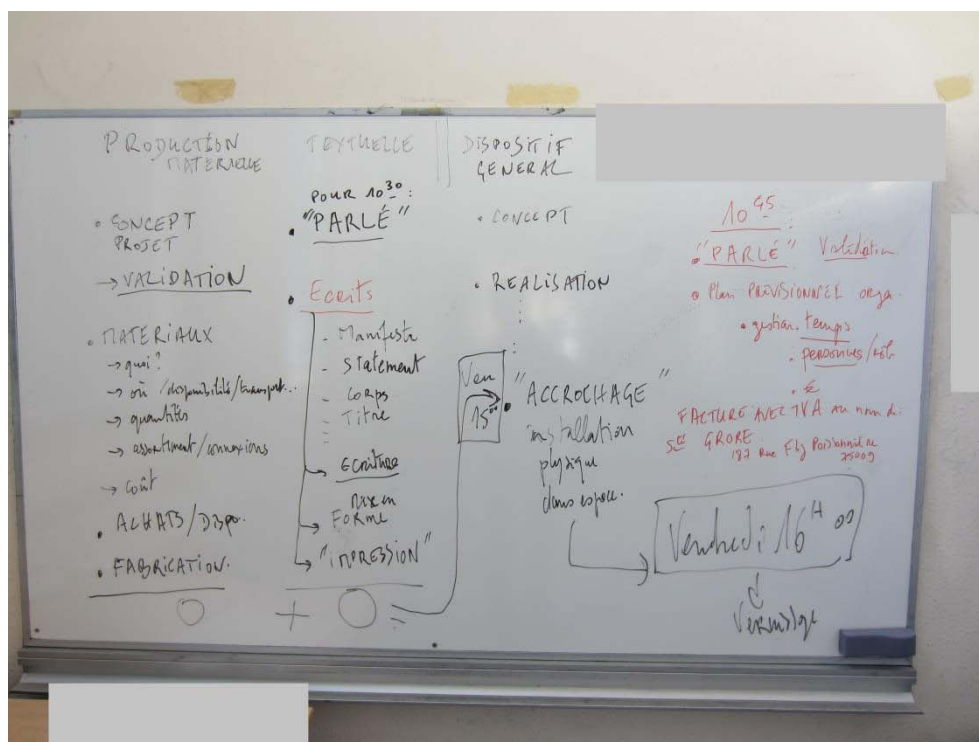 PRODUCTION
MATERIELLE
• CONCEPT
PROJET
→ VALIDATION
• MATERIAUX
→ quoi?
→ où /disponibilité/transport...
→ quantités
→ assortiment/connexions
→ coût
• ACHATS/DISPO.
• FABRICATION.
+
TEXTUELLE
POUR 10 30 :
• "PARLÉ"
• Ecrits
- Manifeste
- STATEMENT
- CORPS
- Titre
→ ECRITURE
MISE EN
→ FORME
→ "IMPRESSION"
DISPOSITIF
GENERAL
• CONCEPT
• REALISATION
Ven
15 00
• "ACCROCHAGE"
installation
physique
dans espace.
10 45 :
• "PARLÉ" Validation
• Plan PROVISIONNEL orga.
• gestion temps
• personnes/
• €
FACTURE AVEC TVA AU nom de:
GRORE
187 Rue Fbg Poissonnière
75009
Vendredi 16 H 00
Vernissage